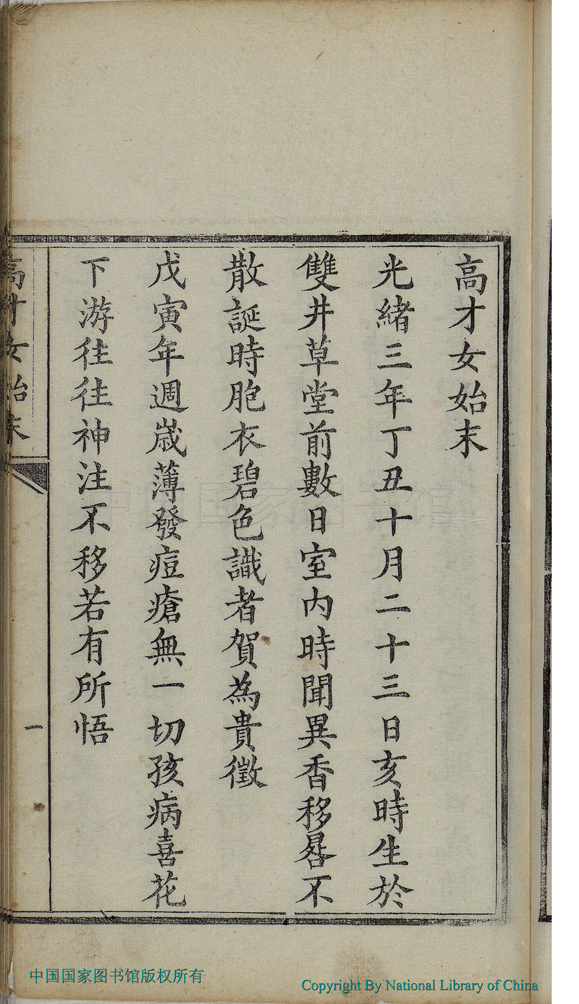 高才女始末
光緒三年丁丑十月二十三日亥時生於
雙井草堂前數日室内時聞異香移晷不
散誕時胞衣碧色識者賀為貴徵
戊寅年週歲薄發痘瘡無一切孩病喜花
下游往往神注不移若有所悟
高才女始末
一
中国国家图书馆
中国国家图书馆版权所有
Copyright By National Library of China